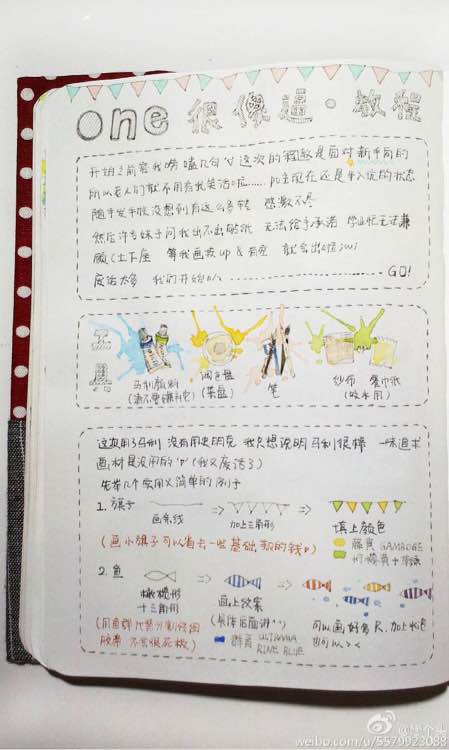 one 很像逼·教程
开始之前容我唠嗑几句 这次的教程是面对新手向的
所以老人们就不用看我笑话啦…… po主现在还是半入坑的状态
随手发手帐没想到有这么多转 感激不尽
然后许多妹子问我出不出胶纸 无法给予承诺 毕业忙无法兼
顾(土下座 等我画技up & 有空 就会出哒
废话太多 我们开始 ……………… GO!
工具
马利颜料
调色盘
(菜盘)
笔
纱布 餐巾纸
(吸水用)
这次用了马利 没有用史明克 我只想说明马利很棒 一味追求
画材是没用的 (我又废话了)
先举几个实用又简单的例子
1. 旗子
画条线
⇒
加上三角形
⇒
填上颜色
藤黄 GAMBOGE
(画小旗子可以省去一些基础款的钱
2. 鱼
⇒
⇒
橄榄形
十三角形
画上纹案
(具体后面讲
群青 ULTRAMA
RINE BLUE
可以画好多只,加上水泡
也可以 > <
胶带 不会很死板)
weibo.com/u/5579023088